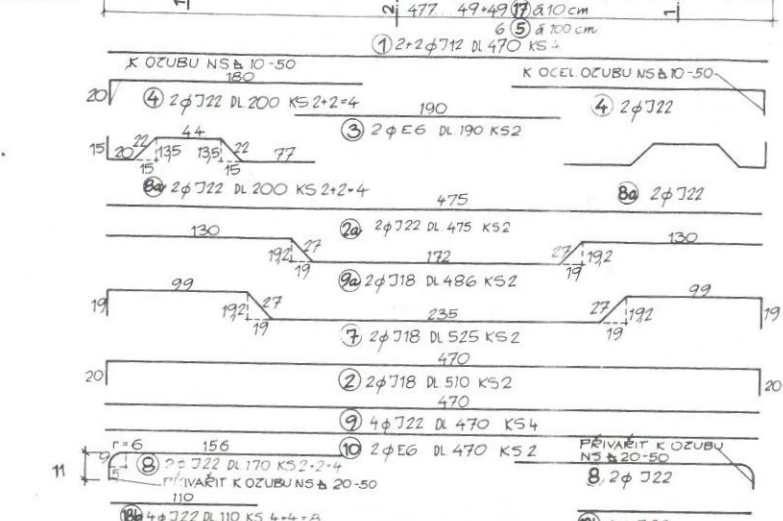 1 2 477 49+49 (17) á 10 cm 1
6 (5) á 100 cm
(1) 2+2ϕJ12 DL 470 KS 4
K OZUBU NS 10-50
180
K OCEL OZUBU NS 10-50
20 (4) 2ϕJ22 DL 200 KS 2+2=4
190
(4) 2ϕJ22
(3) 2ϕE6 DL 190 KS2
15 20 22 44 22 77
13,5 13,5
15 15
(8a) 2ϕJ22 DL 200 KS 2+2=4
(8a) 2ϕJ22
475
(2a) 2ϕJ22 DL 475 KS2
130 27 172 27 130
19,2 19,2
19 19
(9a) 2ϕJ18 DL 486 KS2
99 27 235 27 99
19 19,2 19,2 19
19 19
(7) 2ϕJ18 DL 525 KS2
470
20 (2) 2ϕJ18 DL 510 KS2 20
470
(9) 4ϕJ22 DL 470 KS4
(10) 2ϕE6 DL 470 KS2
r=6 156
PŘIVAŘIT K OZUBU
NS 20-50
11 9 5 (8) 2ϕJ22 DL 170 KS2+2=4
8, 2ϕJ22
PŘIVAŘIT K OZUBU NS 20-50
110
4ϕJ22 DL 110 KS 4+4=8